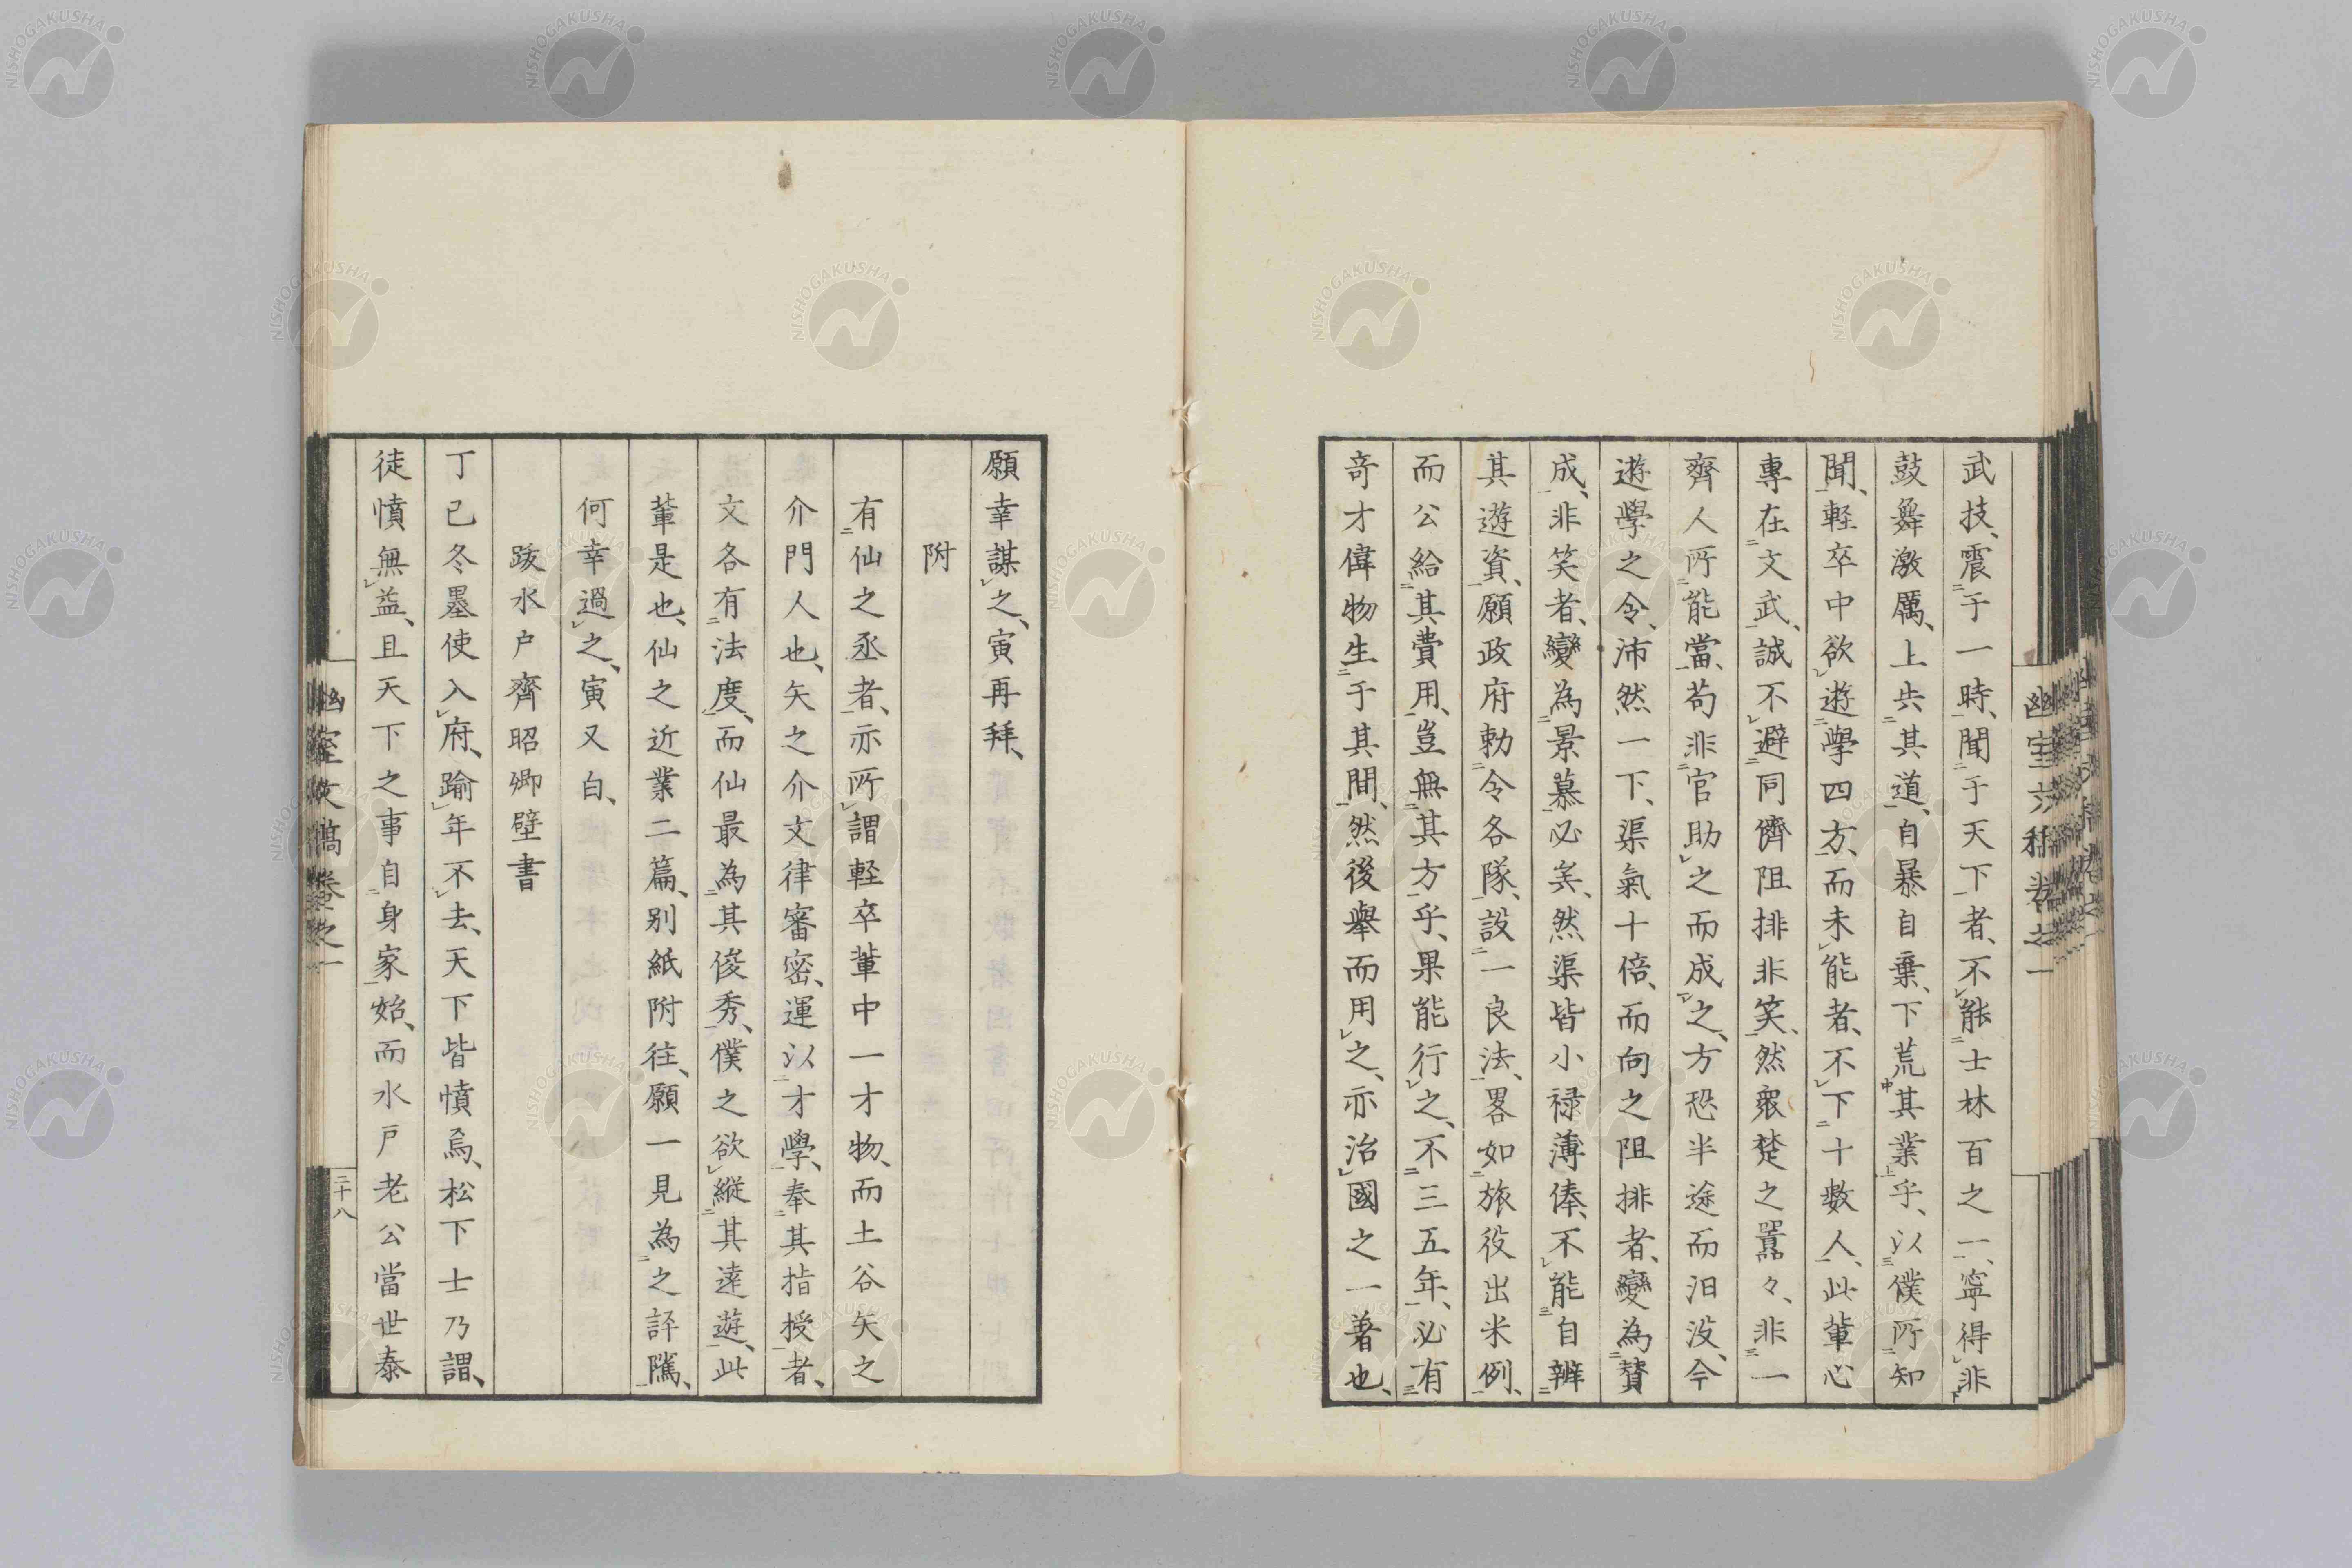 武技、震于一時、聞于天下者、不能士林百之一、寧得非
鼓舞激厲、上失其道、自暴自棄、下荒其業乎、以僕所知
聞、軽卒中欲遊學四方、而未能者、不下十數人、此輩心
專在文武、誠不避同儕阻排非笑、然衆楚之嚣々、非一
齊人所能當、苟非官助之而成之、方恐半途而汨没、今
遊學之令、沛然一下、渠氣十倍、而向之阻排者、變為賛
成、非笑者、變為景慕必矣、然渠皆小禄薄俸、不能自辨
其遊資、願政府勅令各隊、設一良法、畧如旅役出米例、
而公給其費用、豈無其方乎、果能行之、不三五年、必有
奇才偉物生于其間、然後舉而用之、亦治國之一著也、
願幸謀之、寅再拜、
附
有仙之丞者、亦所謂軽卒輩中一才物、而土谷矢之
介門人也、矢之介文律審密、運以才學、奉其指授者、
文各有法度、而仙最為其俊秀、僕之欲縱其遠遊、此
輩是也、仙之近業二篇、別紙附往、願一見為之評隲、
何幸過之、寅又白、
跋水户齊昭卿壁書
丁巳冬墨使入府、踰年不去、天下皆憤焉、松下士乃謂、
徒憤無益、且天下之事自身家始、而水戸老公當世泰
幽室文稿卷之一
二十八
NISHOGAKUSHA